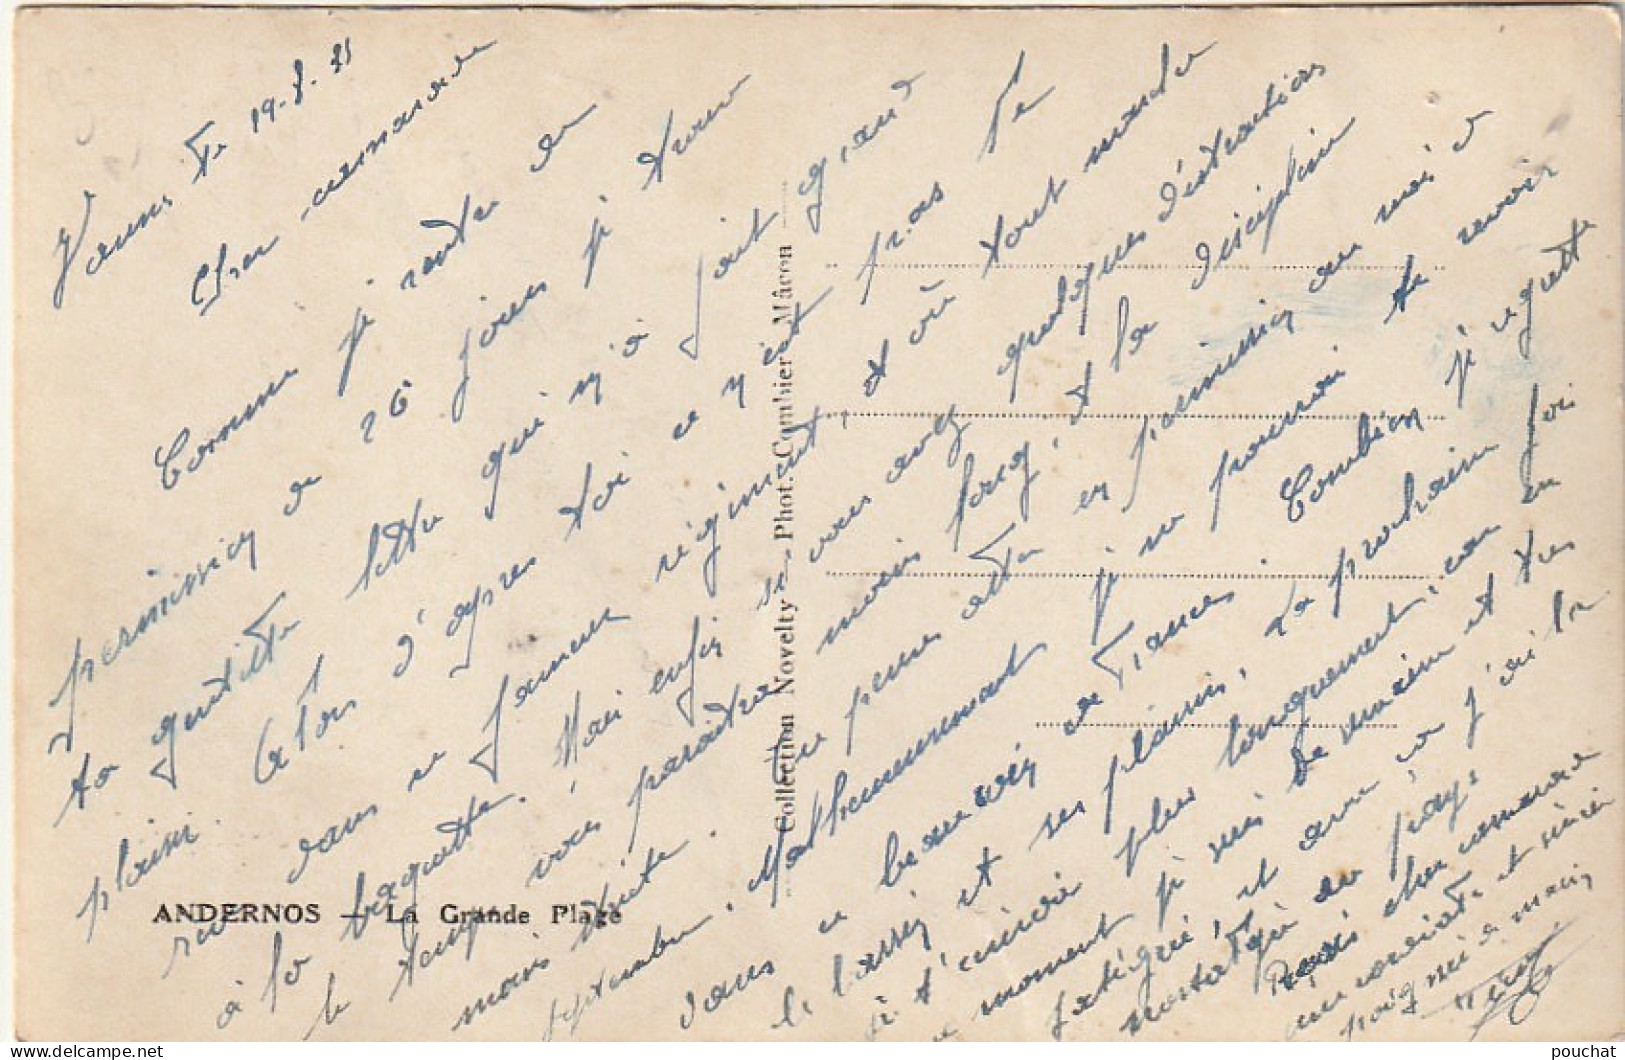 Vannes le 19-8-31
Cher camarade
Comme je rentre de
permission de 26 jours je trouve
ta gentille lettre qui m'a fait grand
plaisir. Alors d'après toi ce n'est pas le
rêve dans ce fameux régiment, et où tout marche
à la baguette. Mais enfin si vous avez quelques distractions
le temps vous paraîtra moins long, et la discipline
moins dure. Je pense aller en permission au mois de
septembre. Malheureusement je ne pourrai te revoir
dans ce beau coin de France. Combien je regrette
le bassin et ses plaisirs. La prochaine fois
je t'écrirai plus longuement, car en
ce moment je suis de semaine et très
fatigué, et avec ça j'ai la
nostalgie du pays.
Reçois cher camarade
une cordiale et sincère
poignée de main
ANDERNOS — La Grande Plage
Collection Novelty - Phot. Combier Mâcon
pouchat